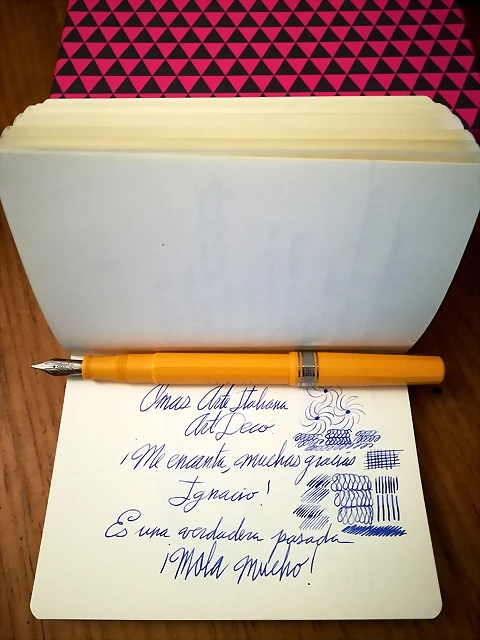 Omas Arte Italiana
Art Deco.
¡Me encanta, muchas gracias
Ignacio!
Es una verdadera pasada
¡Mola mucho!